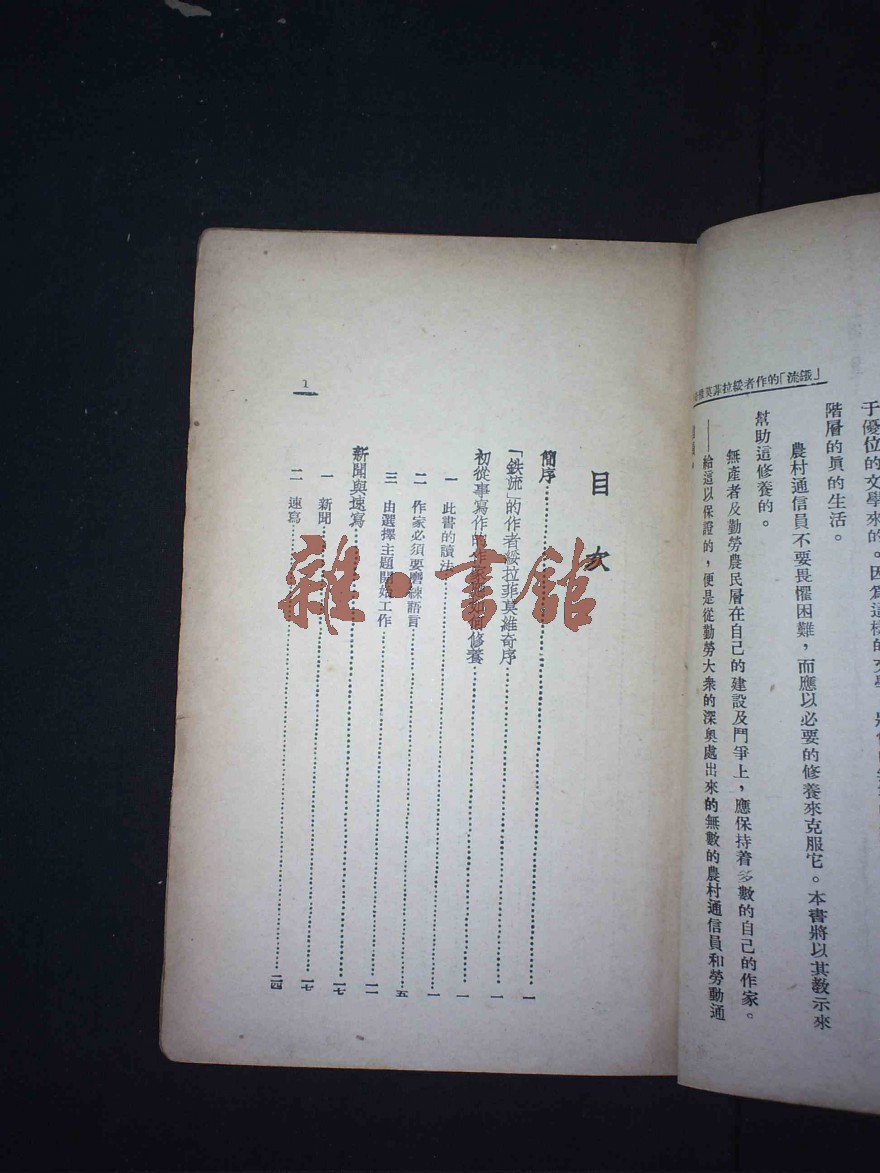 「流鐵」的作者綏拉菲莫維
于優位的文學來的。因爲這樣的文學
階層的眞的生活。
農村通信員不要畏懼困難，而應以必要的修養來克服它。本書將以其教示來
幫助這修養的。
無產者及勤勞農民層在自己的建設及鬥爭上，應保持着多數的自己的作家。
——給這以保證的，便是從勤勞大衆的深奥處出來的無數的農村通信員和勞動通
目次
簡序……一
「鉄流」的作者綏拉菲莫維奇序……一
初從事寫作的作家 修養……一
一 此書的讀法……一
二 作家必須要磨練語言……五
三 由選擇主題開始工作……一一
新聞與速寫……一七
一 新聞……一七
二 速寫……二四
1
雜·書舘